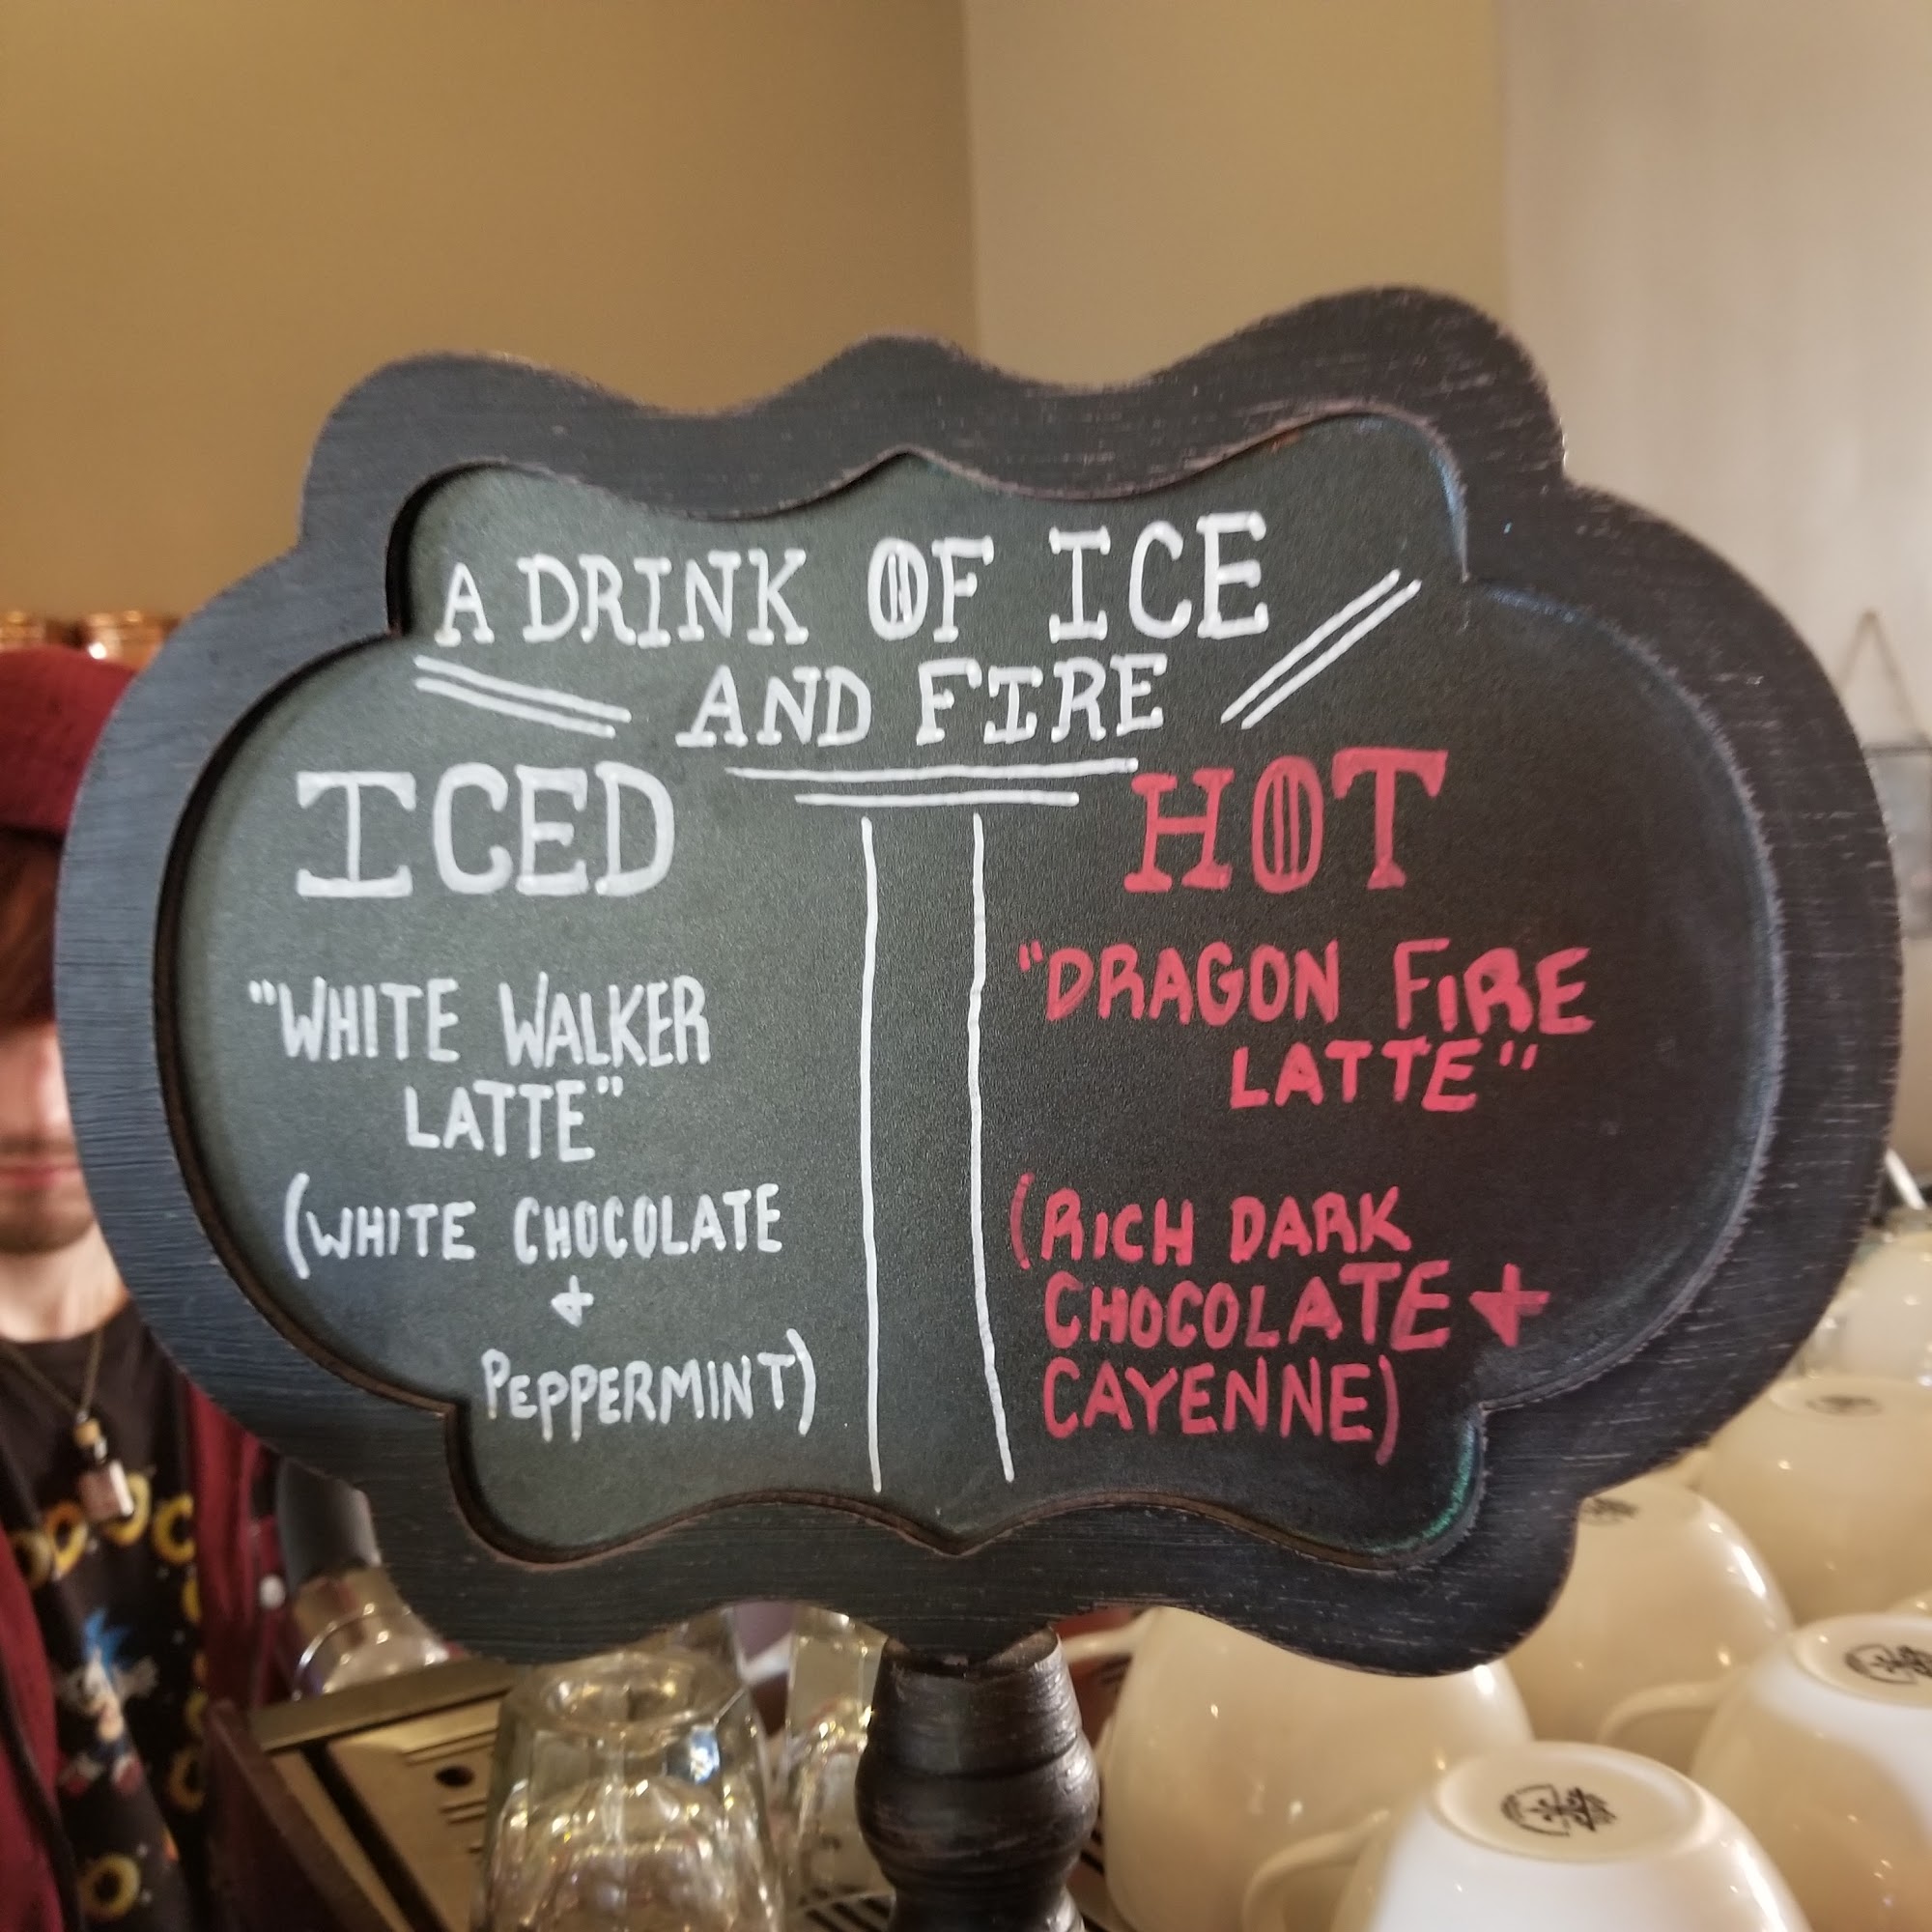 A DRINK OF ICE
AND FIRE
ICED
"WHITE WALKER
LATTE"
(WHITE CHOCOLATE
+
PEPPERMINT)
HOT
"DRAGON FIRE
LATTE"
(RICH DARK
CHOCOLATE +
CAYENNE)